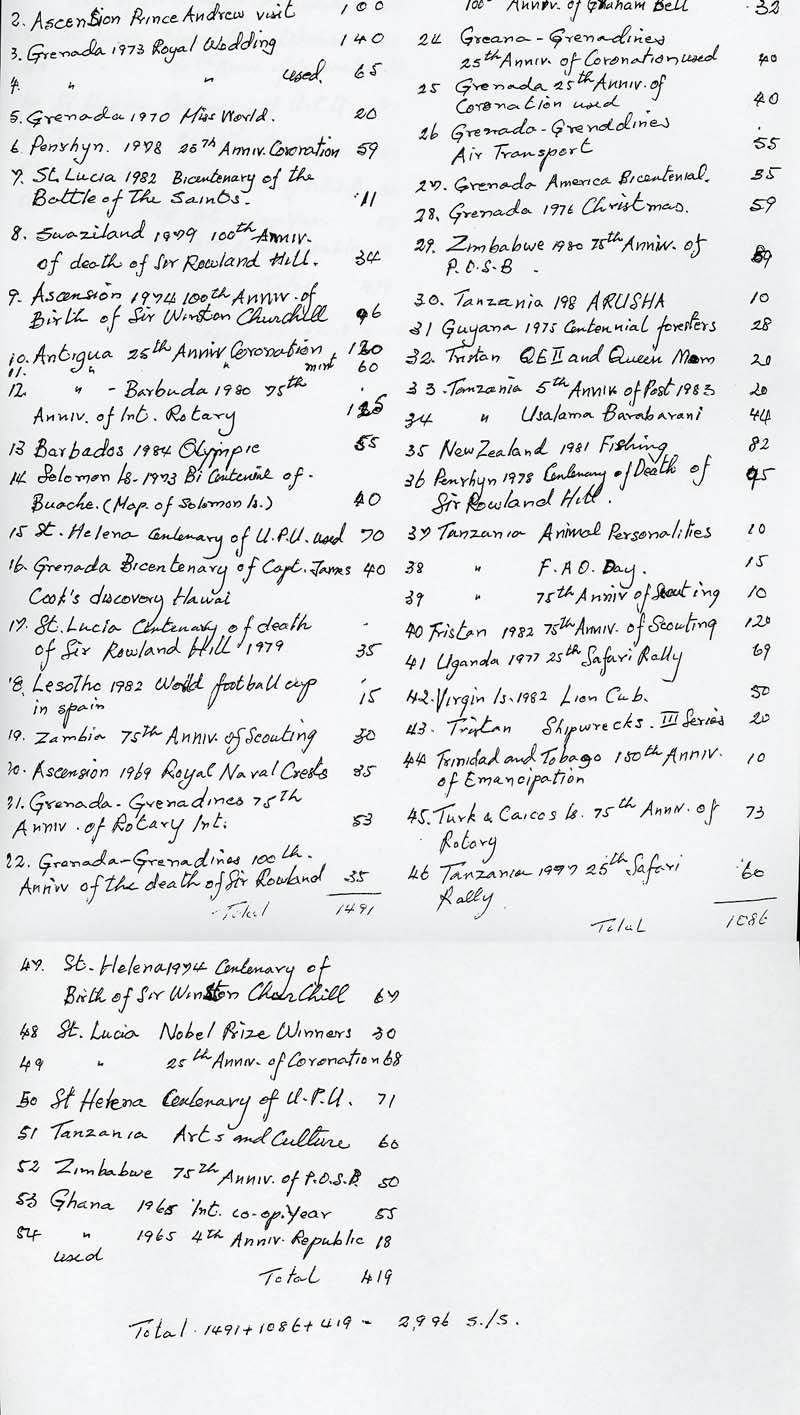 2. Ascension Prince Andrew visit 100
3. Grenada 1973 Royal Wedding 140
4. " " used. 65
5. Grenada 1970 Miss World. 20
6. Penrhyn. 1978 25th Anniv. Coronation 59
7. St. Lucia 1982 Bicentenary of the
Battle of The Saints. 11
8. Swaziland 1979 100th Anniv.
of death of Sir Rowland Hill. 34
9. Ascension 1974 100th Anniv. of
Birth of Sir Winston Churchill 96
10. Antigua 25th Anniv Coronation
11. " " mint 60
12. " - Barbuda 1980 75th
Anniv. of Int. Rotary
13 Barbados 1984 Olympic 55
14 Solomon Is. 1973 Bi Centenine of.
Buache. (Map. of Solomon Is.) 40
15 St. Helena Centenary of U.P.U. used 70
16. Grenada Bicentenary of Capt. James 40
Cook's discovery Hawai
17. St. Lucia Centenary of death
of Sir Rowland Hill 1979 35
18. Lesotho 1982 World football cup
in spain 15
19. Zambia 75th Anniv. of Scouting 30
20. Ascension 1969 Royal Naval Crests 35
21. Grenada - Grenadines 75th
Anniv. of Rotary Int. 53
22. Grenada-Grenadines 100th.
Anniv of the death of Sir Rowland 35
Total 1491
100th Anniv. of Graham Bell 32
24 Greana - Grenadines
25th Anniv. of Coronation used 40
25 Grenada 25th Anniv. of
Coronation used 40
26 Grenada - Grenddines
Air Transport 55
27. Grenada America Bicentenial. 35
28. Grenada 1976 Christmas. 59
29. Zimbabwe 1980 75th Anniv. of
P.O.S.B.
30. Tanzania 198 ARUSHA 10
31 Guyana 1975 Centennial foresters 28
32. Tristan QE II and Queen Mom 20
33. Tanzania 5th Anniv. of Post 1983 20
34 " Usalama Barabarani 44
35 New Zealand 1981 Fishing 82
36 Penrhyn 1978 Centenary of Death of 95
Sir Rowland Hill.
37 Tanzania Animal Personalities 10
38 " F.A.O. Day. 15
39 " 75th Anniv of Scouting 10
40 Tristan 1982 75th Anniv. of Scouting 120
41 Uganda 1977 25th Safari Rally 69
42. Virgin Is. 1982 Lion Cub. 50
43. Tristan Shipwrecks. III Series 20
44 Trinidad and Tobago 150th Anniv. 10
of Emancipation
45. Turk & Caicos Is. 75th Anniv. of 73
Rotary
46 Tanzania 1977 25th Safari 60
Rally
Total 1086
47. St. Helena 1974 Centenary of
Birth of Sir Winston Churchill 67
48 St. Lucia Nobel Prize Winners 30
49 " 25th Anniv. of Coronation 68
50 St Helena Centenary of U.P.U. 71
51 Tanzania Arts and Culture 60
52 Zimbabwe 75th Anniv. of P.O.S.B. 50
53 Ghana 1965 Int. co-op. Year 55
54 " 1965 4th Anniv. Republic 18
used
Total 419
Total. 1491 + 1086 + 419 = 2,996 s./s.